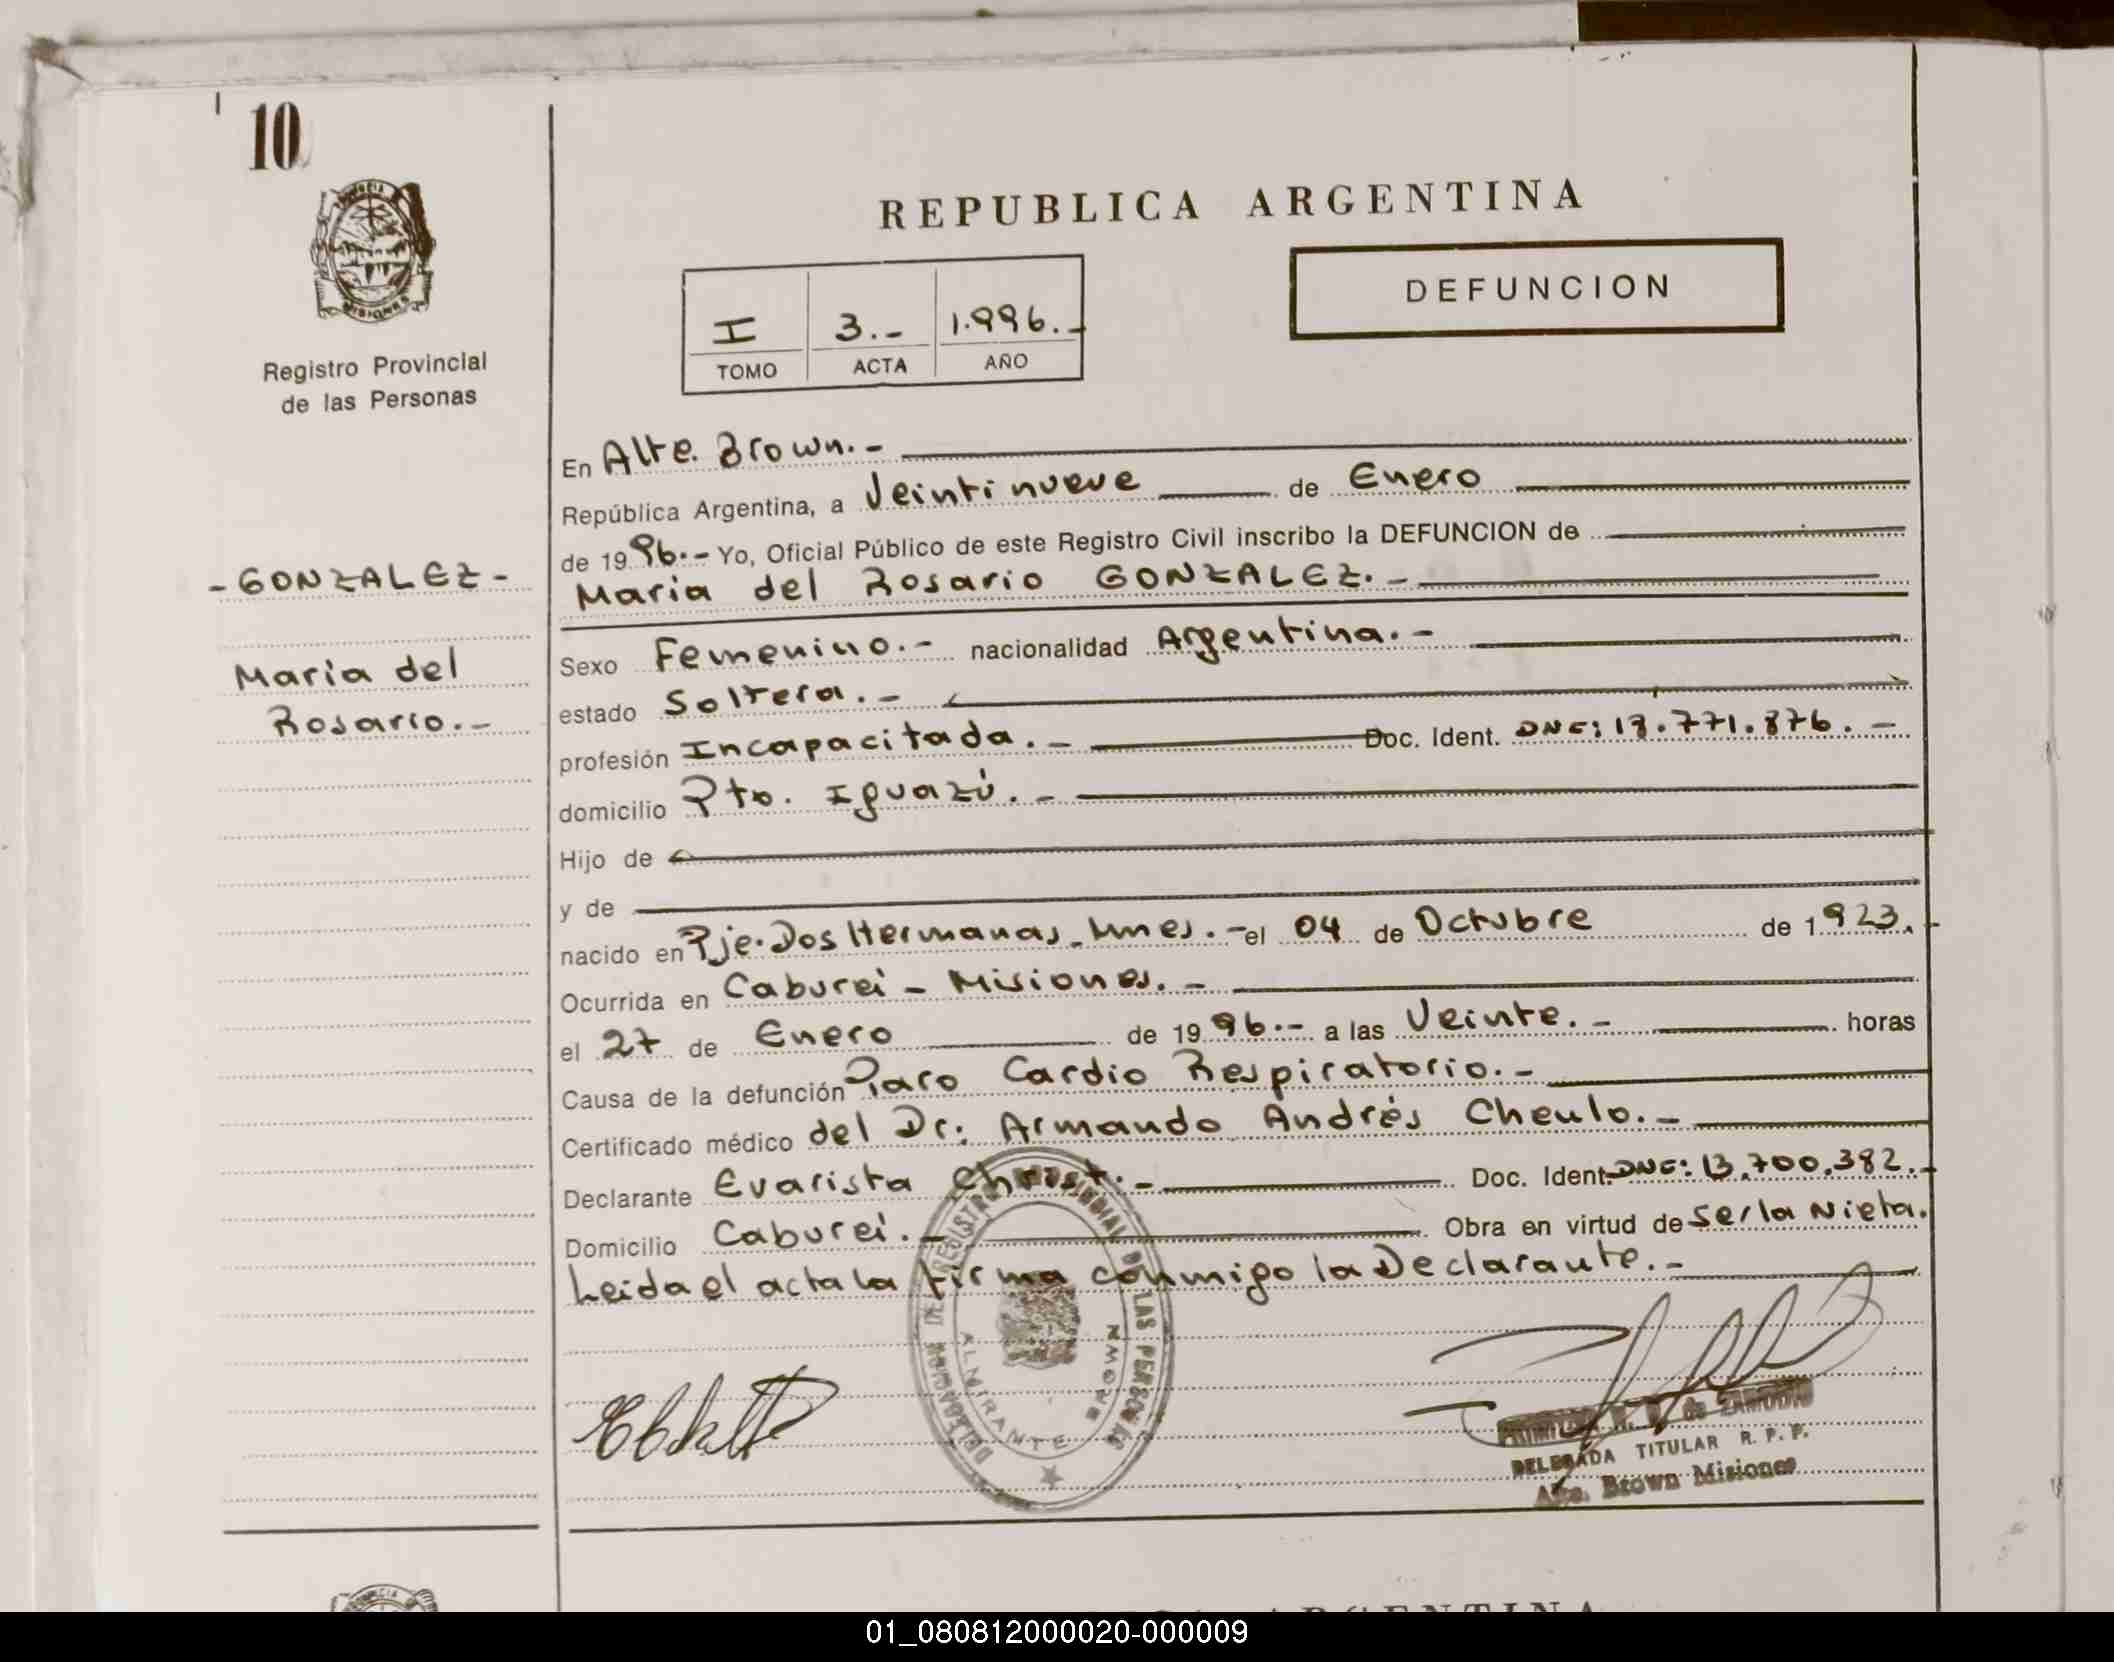 10
Registro Provincial
de las Personas
- GONZALEZ -
Maria del
Rosario.-
REPUBLICA ARGENTINA
DEFUNCION
I 3.- 1.996.-
TOMO ACTA AÑO
En Alte. Brown.-
República Argentina, a Veintinueve de Enero
de 1996.- Yo, Oficial Público de este Registro Civil inscribo la DEFUNCION de
Maria del Rosario GONZALEZ.-
Sexo Femenino.- nacionalidad Argentina.-
estado Soltera.-
profesión Incapacitada.- Doc. Ident.
domicilio Pto. Iguazú.-
Hijo de
y de
nacido en Pje. Dos Hermanas, Mnes.- el 04 de Octubre de 1923.-
Ocurrida en Cabureí - Misiones.-
el 27 de Enero de 1996.- a las Veinte.- horas
Causa de la defunción Paro Cardio Respiratorio.-
Certificado médico del Dr. Armando Andrés Cheulo.-
Declarante Evarista Christ.- Doc. Ident. 13.700.382.-
Domicilio Cabureí.- Obra en virtud de Ser la Nieta.
Leida el acta la firma conmigo la Declarante.-
DELEGACION DEL REGISTRO PROVINCIAL DE LAS PERSONAS
ALMIRANTE BROWN
de ZAMUDIO
DELEGADA TITULAR R. P. P.
Alte. Brown Misiones
ARGENTINA
01_080812000020-000009